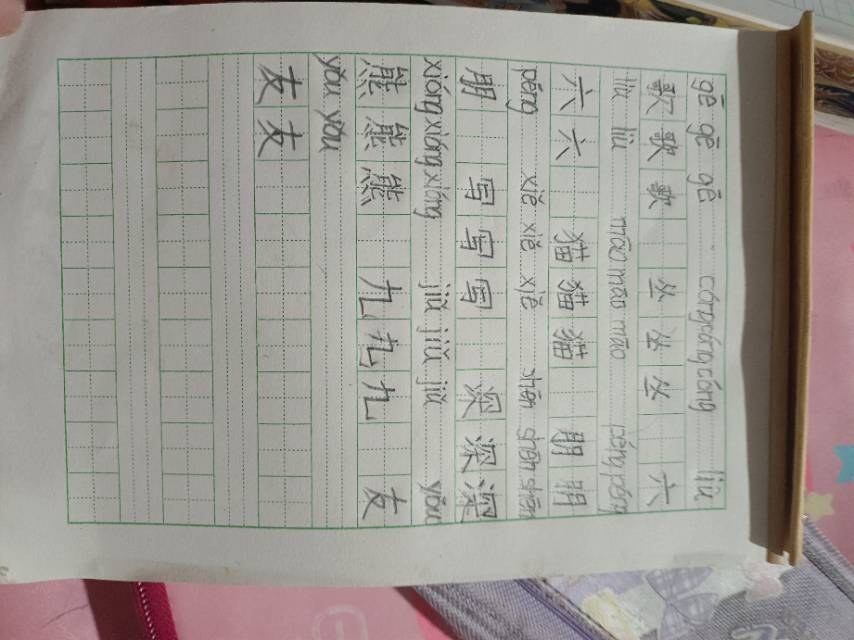 gē gē gē cóng cóng cóng liù
歌歌歌 丛丛丛 六
liù liù māo māo māo péng péng
六六 猫猫猫 朋朋
péng xiě xiě xiě shēn shēn shēn
朋 写写写 深深深
xióng xióng xióng jiǔ jiǔ jiǔ yǒu
熊熊熊 九九九 友
yǒu yǒu
友友